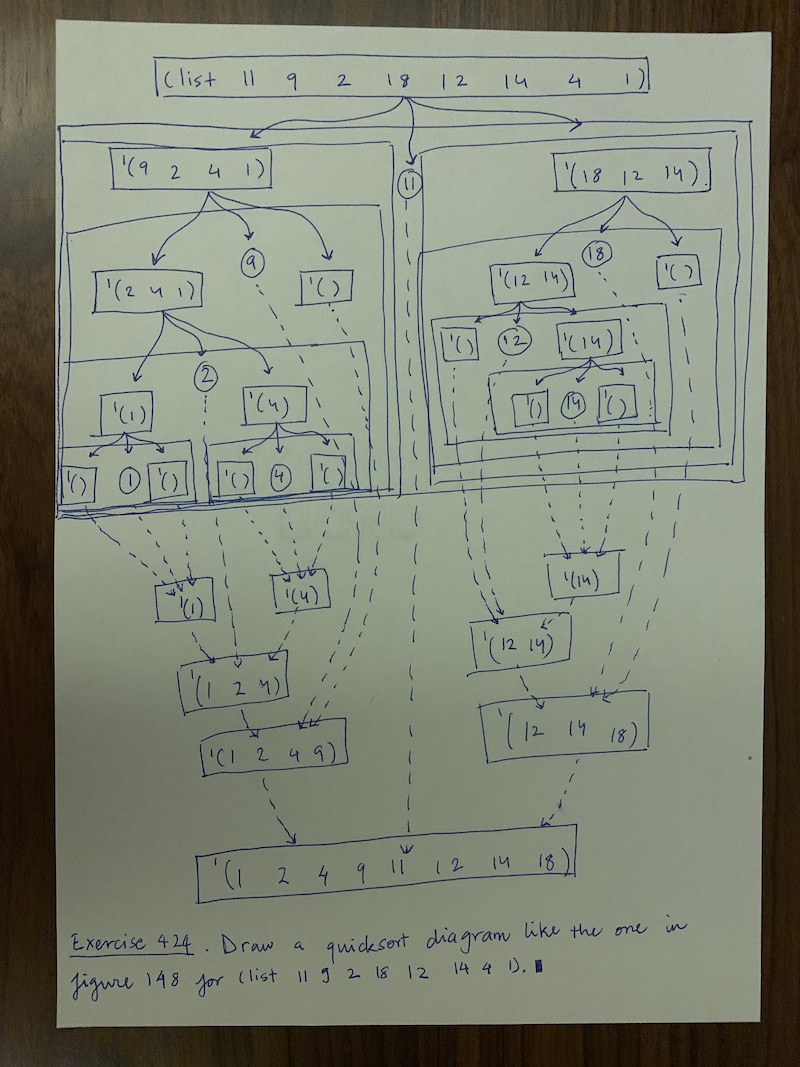 (list 11 9 2 18 12 14 4 1)
'(9 2 4 1) 11 '(18 12 14)
'(2 4 1) 9 '() '(12 14) 18 '()
'() 12 '(14)
2
'(1) '(4) '() 14 '()
'() 1 '() '() 4 '()
'(1) '(4) '(14)
'(12 14)
'(1 2 4)
'(1 2 4 9) '(12 14 18)
'(1 2 4 9 11 12 14 18)
Exercise 424. Draw a quicksort diagram like the one in
figure 148 for (list 11 9 2 18 12 14 4 1).